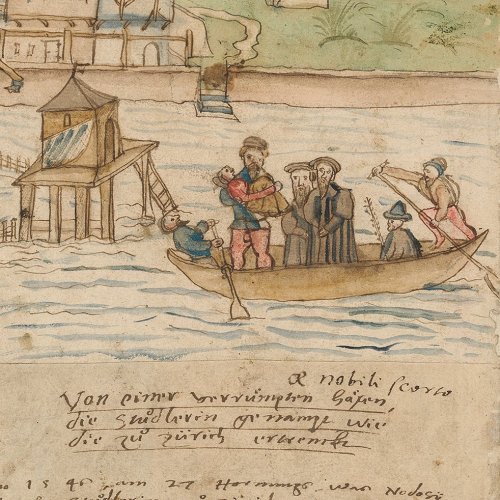 & nobili scorto
Von einer verrümpten Häxen,
die Studlerin genampt wie
die zu Zürich ertrenckt
1546 am 27 Hornungs was